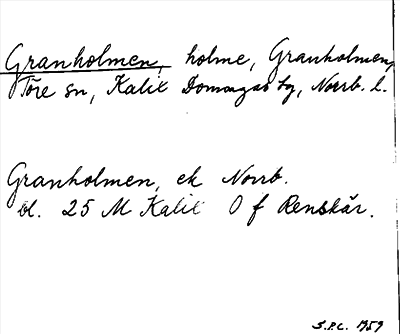 Granholmen, holme, Granholmen,
Töre sn, Kalix Domsagas tg, Norrb. l.
Granholmen, ek Norrb.
bl. 25 M Kalix O f Renskär.
S.P.L. 1959